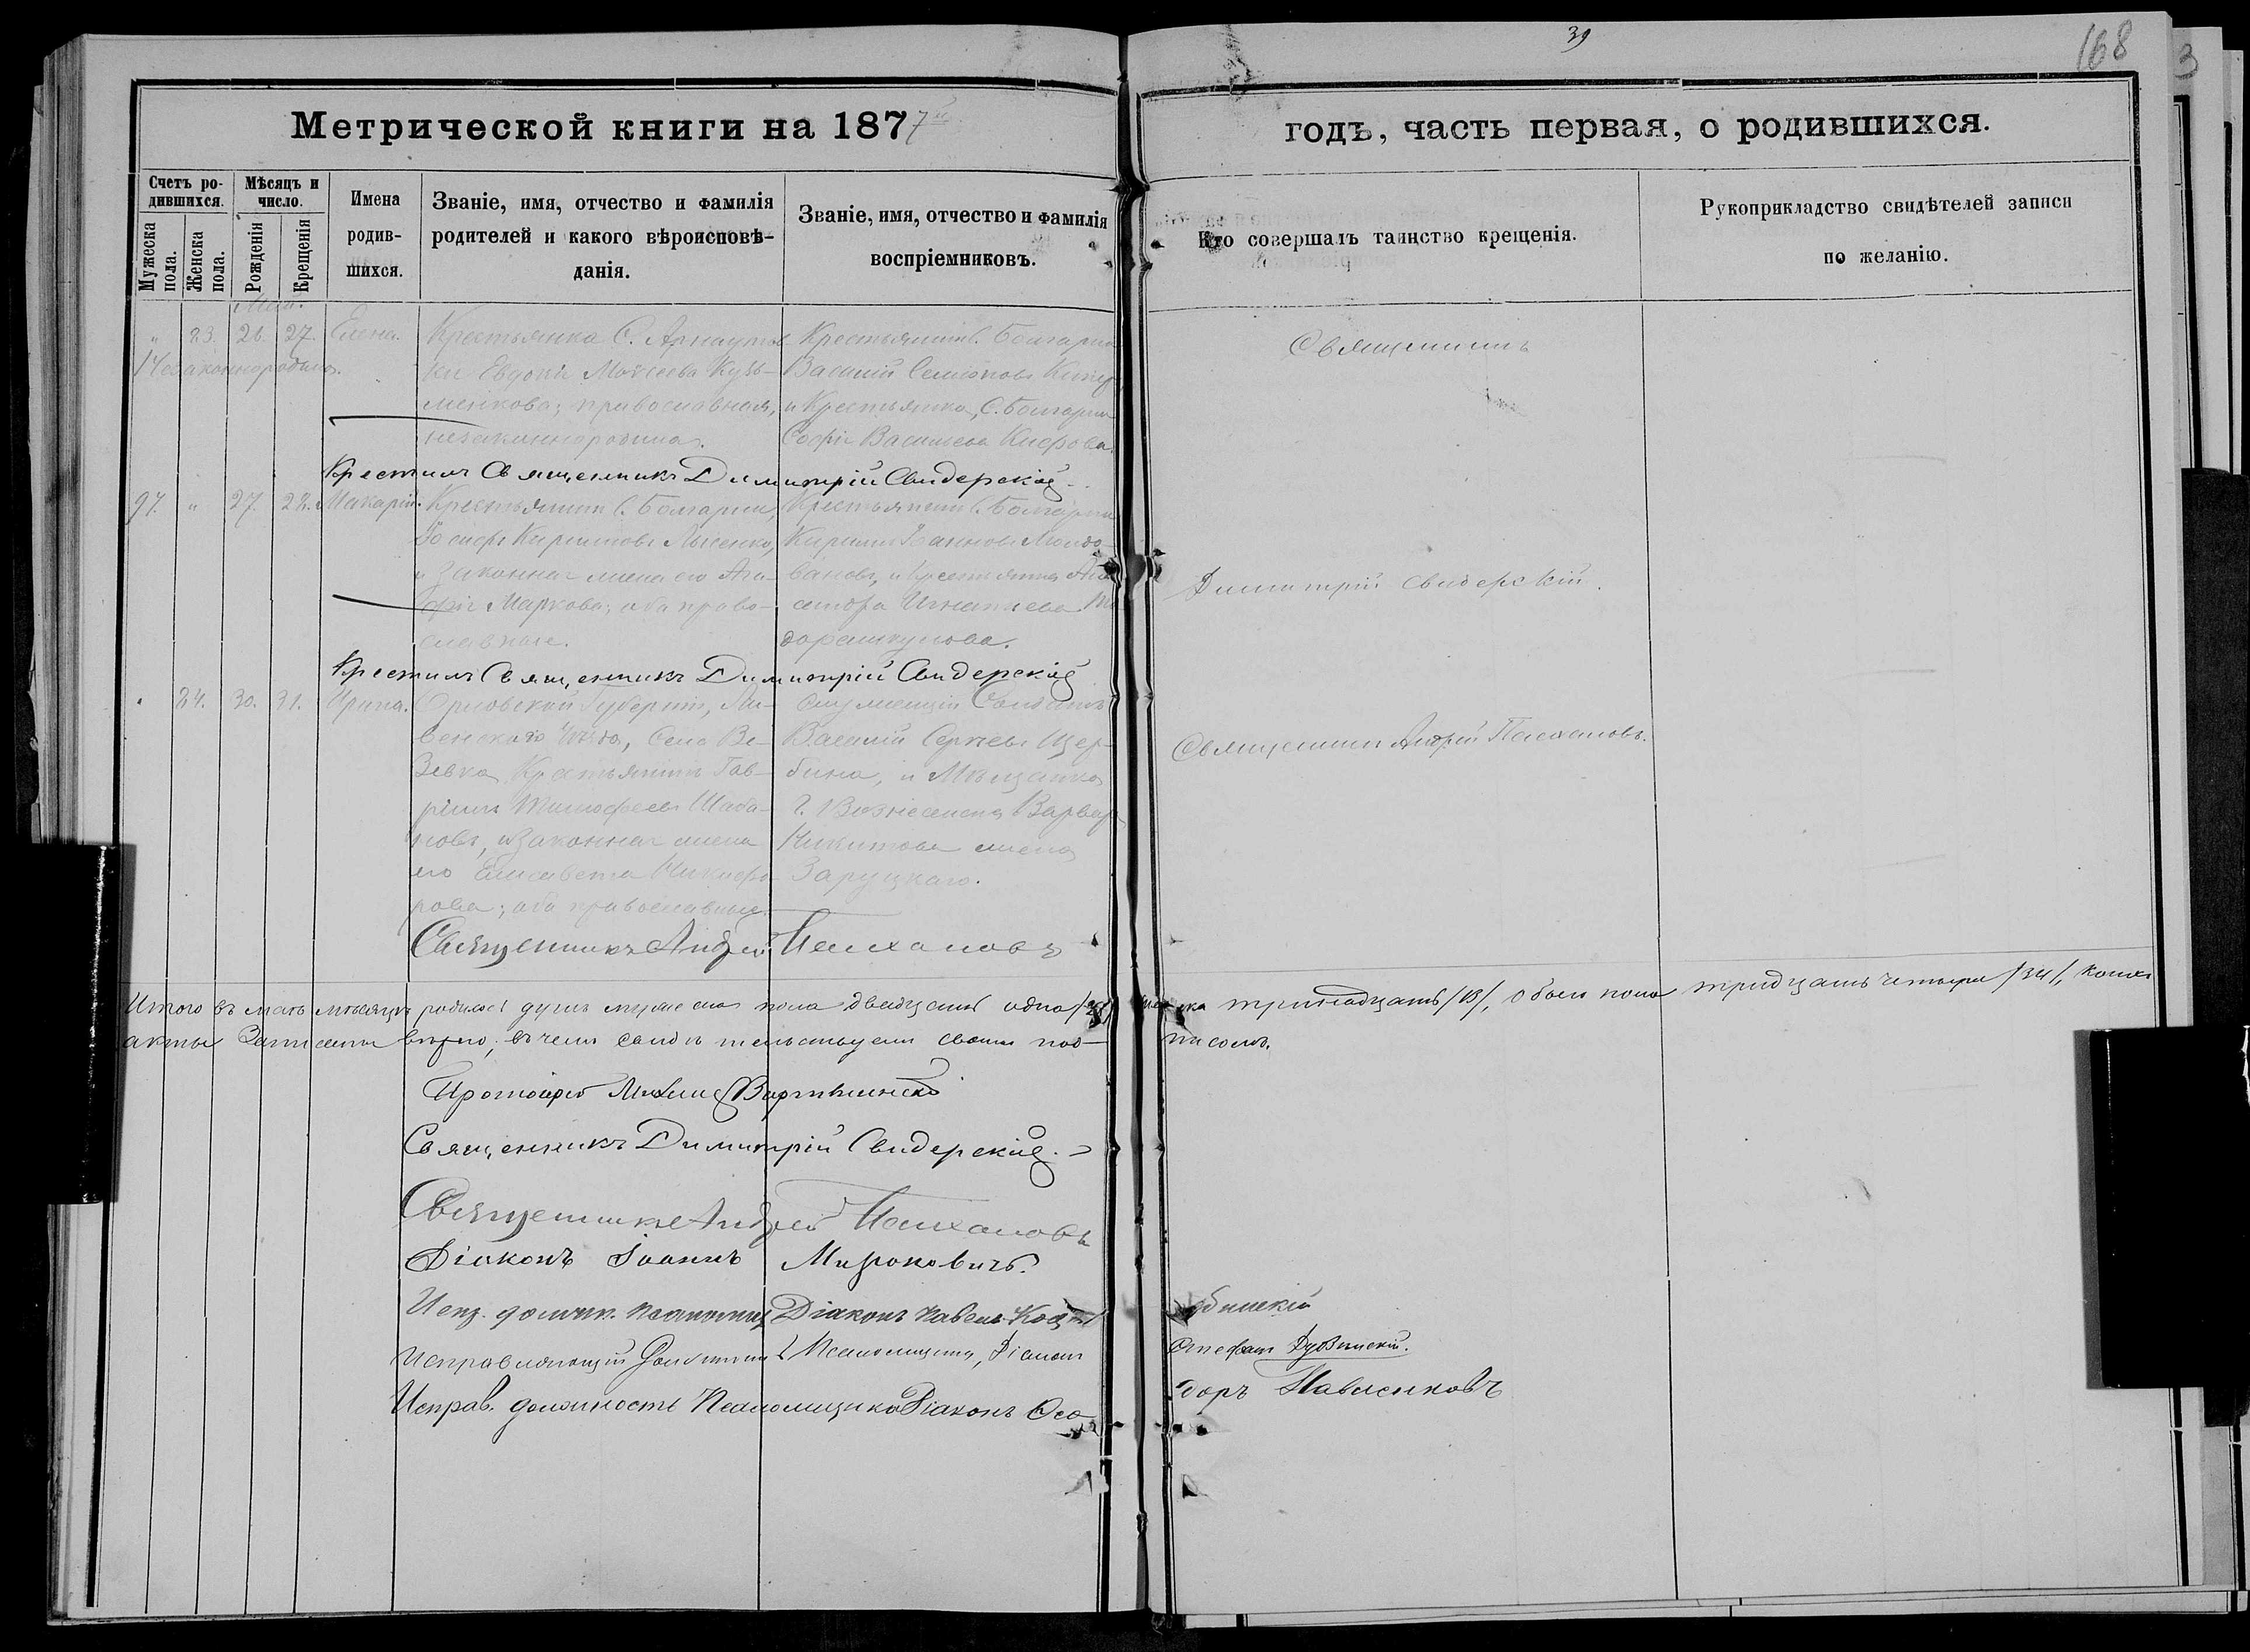 39
168
3
Метрической книги на 1877й
годъ, часть первая, о родившихся.
Счетъ родившихся.
Мѣсяцъ и число.
Мужеска пола.
Женска пола.
Рожденія
Крещенія
Имена родившихся.
Званіе, имя, отчество и фамилія родителей и какого вѣроисповѣданія.
Званіе, имя, отчество и фамилія воспріемниковъ.
Кто совершалъ таинство крещенія.
Рукоприкладство свидѣтелей записи по желанію.
Май.
" 83. 26. 27. Елена.
Незаконнорожден.
Крестьянка С. Арнаутов-
ки Евдокія Моисеева Кузь-
менкова; православная,
незаконнорождена.
Крестьянинъ С. Болгарки
Василій Семіоновъ
и Крестьянка, С. Болгарки
Софія Васильева Киорова.
Священникъ
Крестилъ Священникъ Димитрій Свидерскій
97. " 27. 28. Макарій.
Крестьянинъ С. Болгарки,
Іосифъ Кирилловъ Лысенко,
и Законная жена его Ага-
фія Маркова; оба право-
славные.
Крестьянинъ С. Болгарки
Кириллъ Іоанновъ Молдо-
вановъ, и Крестьянка
Игнатьева
Димитрій Свидерскій.
Крестилъ Священникъ Димитрій Свидерскій
" 84. 30. 31. Ирина.
Орловской Губерніи, Ли-
венскаго Уѣзда, Села Ве-
зевка, Крестьянинъ Гав-
ріилъ Тимофеевъ Шаба-
новъ, и Законная жена
его Елисавета Никифо-
рова; оба православные.
Служащій Солдатъ
Василій Сергѣевъ Щер-
бина, и Мѣщанка
Г. Вознесенска Варвара
Никитова жена
Заруцкаго.
Священникъ Андрей Палхановъ.
Священникъ Андрей Палхановъ
Итого въ маѣ мѣсяцѣ родилось душъ мужеска пола двадцать одна /21/ женска тринадцать /13/, обоего пола тридцать четыре /34/, коихъ
акты Записаны вѣрно; въ чемъ свидѣтельствуемъ своимъ под- писомъ.
Протоіерей Михаилъ
Священникъ Димитрій Свидерскій.
Священникъ Андрей Палхановъ
Діаконъ Іоаннъ Мироковичъ.
Испр. должн. Псаломщ. Діаконъ Павелъ
Исправляющій Должность Псаломщика, Діаконъ Стефанъ Дубинскій.
Исправ. должность Псаломщика Діаконъ Ѳеодоръ Павленковъ